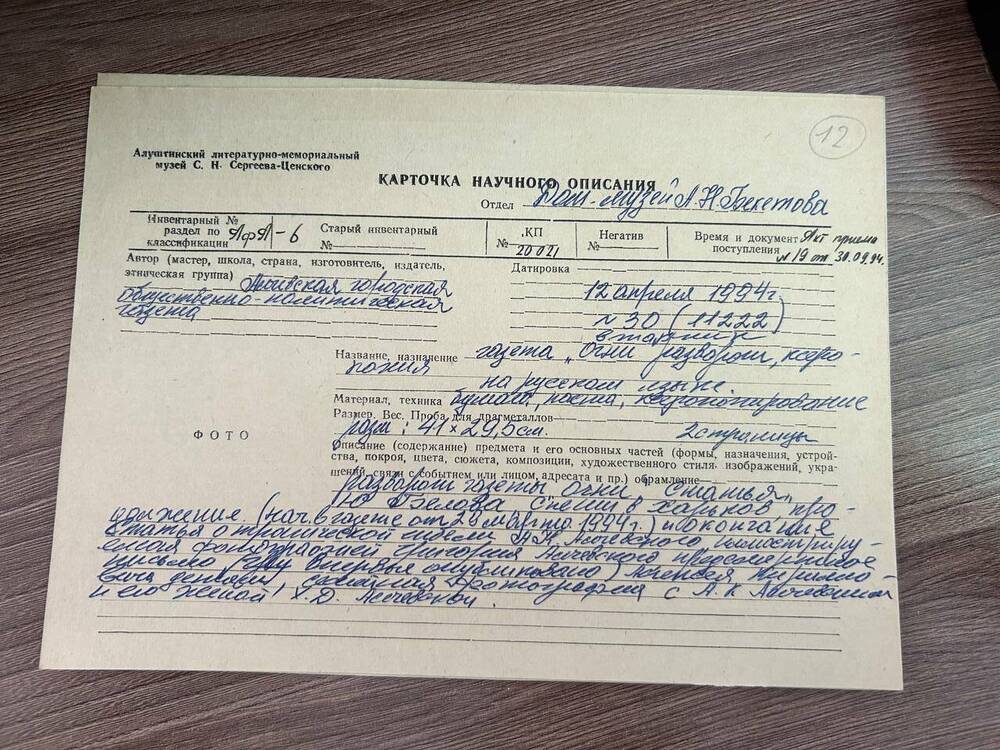 12
Алуштинский литературно-мемориальный
музей С. Н. Сергеева-Ценского
КАРТОЧКА НАУЧНОГО ОПИСАНИЯ
Отдел Дом-музей А Н Бекетова
Инвентарный №
раздел по
классификации АфА-6
Старый инвентарный
№
КП
№ 20021
Негатив
№
Время и документ Акт приема
поступления № 19 от 30.09.94.
Автор (мастер, школа, страна, изготовитель, издатель,
этническая группа) городская
общественно-политическая
газета
Датировка
12 апреля 1994г.
№ 30 (11222)
вторник
Название, назначение газета „Огни разворот, ксеро-
копия
на русском языке.
Материал, техника бумага, паста, ксерокопирование
Размер. Вес. Проба для драгметаллов
разм: 41 × 29,5 см. 2 страницы
ФОТО
Описание (содержание) предмета и его основных частей (формы, назначения, устрой-
ства, покроя, цвета, сюжета, композиции, художественного стиля изображений, укра-
шений, связи с событием или лицом, адресата и пр.) обрамление
разворот газеты Огни, статья
Ю Белова Спеши в Харьков про-
должение (нач. в газете от 29 марта 1994г.) и окончание
статья о трагической гибели А.К. Алчевского иллюстриру-
емая фотографией Григория Алчевского предсмертное
письмо впервые опубликовано Алексея Кирилло-
вича семейная фотография с А. К Алчевским
и его женой Х.Д. Алчевской.